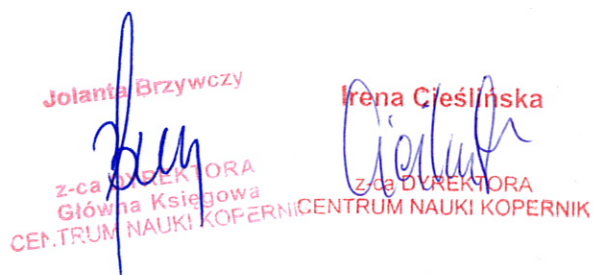 Jolanta Brzywczy
z-ca DYREKTORA
Główna Księgowa
CENTRUM NAUKI KOPERNIK
Irena Cieślińska
z-ca DYREKTORA
CENTRUM NAUKI KOPERNIK